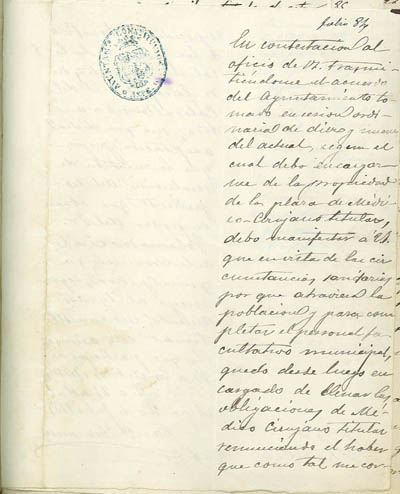 Julio 84
En contestacion al
oficio de V. trasmi-
tiéndome el acuerdo
del Ayuntamiento to-
mado en sesion ordi-
naria del diez y nueve
del actual, segun el
cual debo encargar-
me de la propiedad
de la plaza de Médi-
co-Cirujano titular,
debo manifestar á V.
que en vista de las cir-
cunstancias sanitarias
por que atraviesa la
poblacion y para com-
pletar el personal fa-
cultativo municipal,
quedo desde luego en-
cargado de llenar las
obligaciones de Mé-
dico Cirujano titular
renunciando el haber
que como tal me cor-